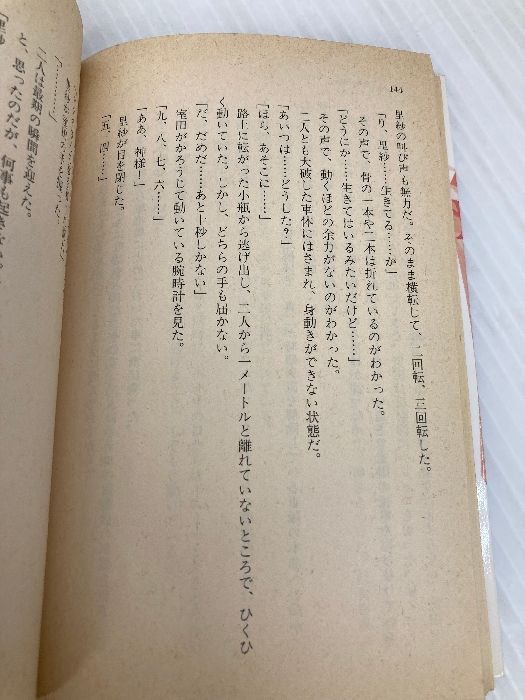 144
里紗の叫び声も無力だ。そのまま横転して、二回転、三回転した。
「り、里紗……生きてる……か」
その声で、骨の一本や二本は折れているのがわかった。
「どうにか……生きてはいるみたいだけど……」
その声で、動くほどの余力がないのがわかった。
二人とも大破した車体にはさまれ、身動きができない状態だ。
「あいつは……どうした?」
「ほら、あそこに……」
路上に転がった小瓶から逃げ出し、二人から一メートルと離れていないところで、ひくひ
く動いていた。しかし、どちらの手も届かない。
「だ、だめだ……あと十秒しかない」
室田がかろうじて動いている腕時計を見た。
「九、八、七、六……」
「ああ、神様!」
里紗が目を閉じた。
「五、四……」
「…………」
二人は最期の瞬間を迎えた。
と、思ったのだが、何事も起きない。
「里紗